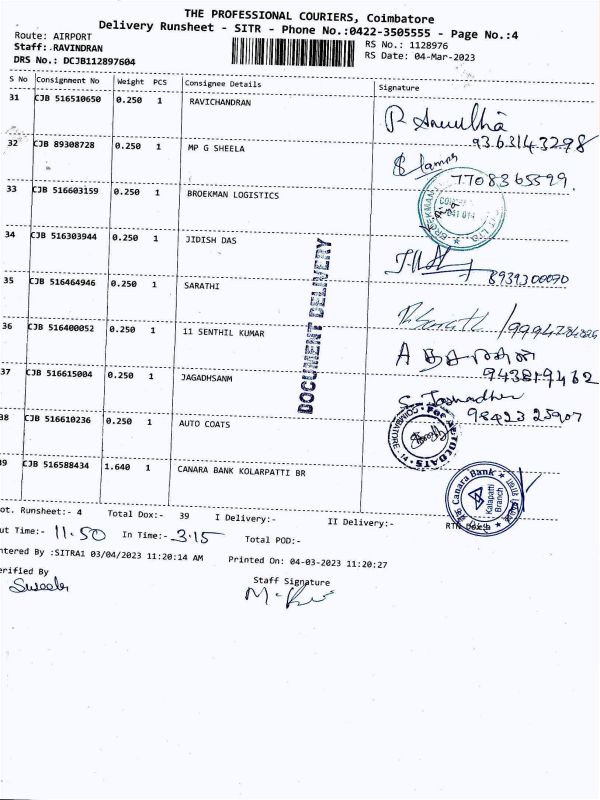 THE PROFESSIONAL COURIERS, Coimbatore
Delivery Runsheet - SITR - Phone No.:0422-3505555 - Page No.:4
Route: AIRPORT
Staff: RAVINDRAN
DRS No.: DCJB112897604
RS No.: 1128976
RS Date: 04-Mar-2023
S No Consignment No Weight PCS Consignee Details Signature
31 CJB 516510650 0.250 1 RAVICHANDRAN
9363143298
32 CJB 89308728 0.250 1 MP G SHEELA
7708365599.
33 CJB 516603159 0.250 1 BROEKMAN LOGISTICS
34 CJB 516303944 0.250 1 JIDISH DAS
8939300070
35 CJB 516464946 0.250 1 SARATHI
36 CJB 516400052 0.250 1 11 SENTHIL KUMAR
943819462
37 CJB 516615004 0.250 1 JAGADHSANM
98423 25907
38 CJB 516610236 0.250 1 AUTO COATS
39 CJB 516588434 1.640 1 CANARA BANK KOLARPATTI BR
DOCUMENT DELIVERY
Canara Bank
Kalapatti
Branch
ot. Runsheet:- 4 Total Dox:- 39 I Delivery:- II Delivery:-
ut Time:- 11.50 In Time:- 3.15 Total POD:-
ntered By :SITRA1 03/04/2023 11:20:14 AM Printed On: 04-03-2023 11:20:27
erified By
Staff Signature